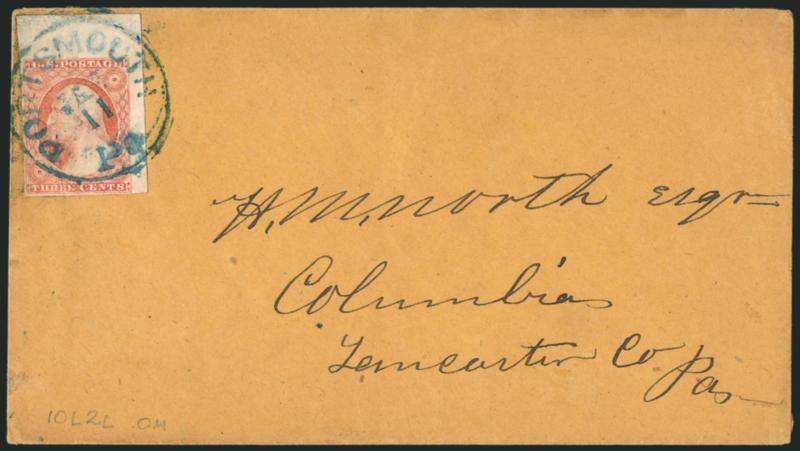 PORTSMOUTH
U.S. POSTAGE
11
Pa
THREE CENTS
H. M. North Esqr
Columbia
Lancaster Co
Pa
10L2L OM